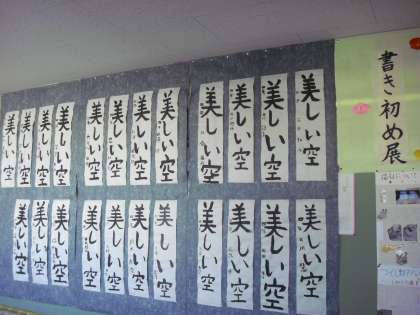 書き初め展
美しい空
美しい空
美しい空
美しい空
美しい空
美しい空
美しい空
美しい空
美しい空
美しい空
美しい空
美しい空
美しい空
美しい空
美しい空
美しい空
美しい空
美しい空
美しい空
美しい空
美しい空
美しい空
美しい空
美しい空